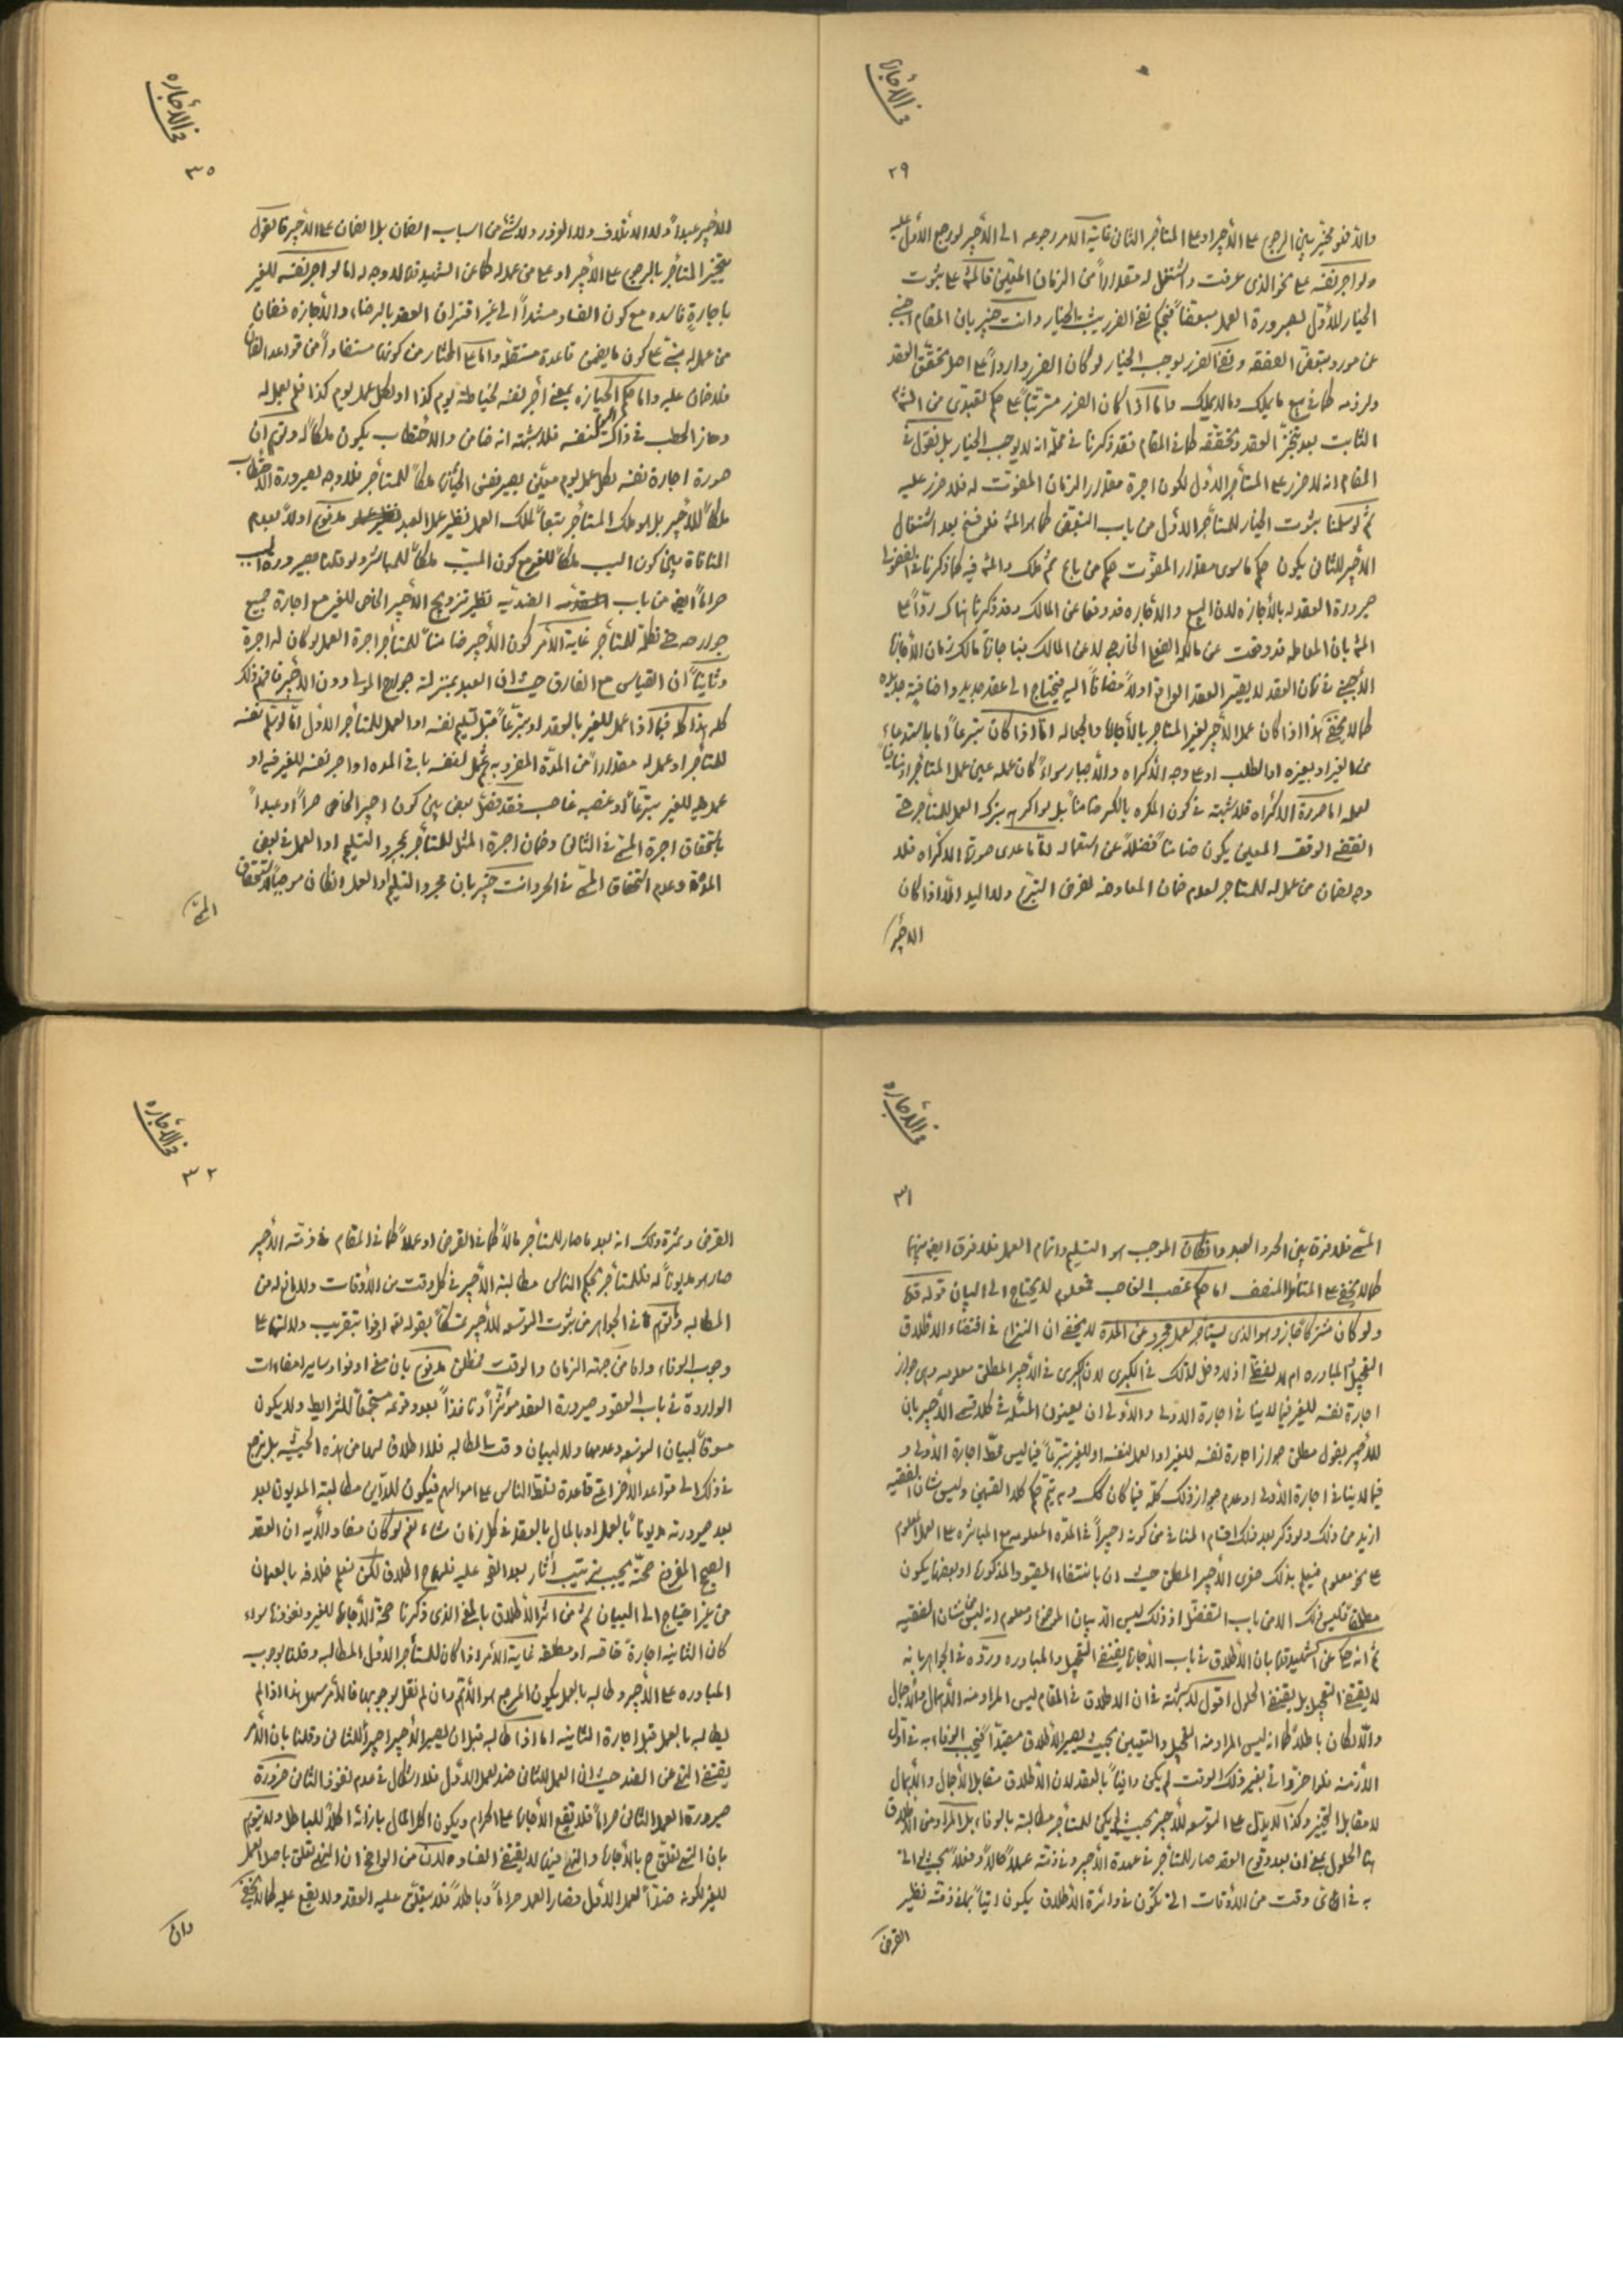 في الأجاره
٢٩
والّا فهو مخيّر بين الرجوع على الأجير او على المستأجر الثانى غاية الامر رجوعه الى الأجير لو رجع الأول عليه
ولو اجر نفسه على نحو الذى عرفت واشتغل له مقداراً من الزمان المعيّن فالمش على ثبوت
الخيار للأول لصيرورة العمل مبعضاً فبحكم نفى الضرر يثبت الخيار وانت خبير بان المقام اجنبى
عن مورد تبعّض الصفقه ونفى الضرر يوجب الخيار لو كان الضرر وارداً على اصل تحقّق العقد
ولزومه كما فى بيع ما يملك وما لا يملك واما اذا كان الضرر مترتباً على حكم تعبدى من
الثابت بعد تنجّز العقد وتحقّقه كما فى المقام فقد ذكرنا فى محلّه انه لا يوجب الخيار بل نقول فى
المقام انه لا ضرر على المستأجر الاوّل لكون اجرة مقدار الزمان المفوّت له فلا ضرر عليه
ثم لو سلمنا بثبوت الخيار للمستأجر الاول من باب التبعّض كما هو المش فلو فسخ بعد اشتغال
الأجير للثانى يكون حكم ما سوى مقدار المفوّت حكم من باع ثم ملك والمش فيه كما ذكرنا فى الفضولى
صيرورة العقد له بالأجازه لان البيع والأجاره قد وقعا عن المالك وقد ذكرنا هناك ردّاً على
المش بان المعامله قد وقعت عن مالكه الواقع الخارجى لا عن المالك فاجازة مالك زمان الأجازة
الأجنبى فى زمان العقد لا يصيّر العقد الواقع اولاً مضافاً اليه فيحتاج الى عقد جديد واضافية جديده
كما لا يخفى هذا اذا كان عمل الأجير لغير المستأجر بالأجارة والجعاله امّا اذا كان متبرعاً اما باستدعاء
من الغير او بغيره او الطلب او على وجه الأكراه والأجبار سواءً كان عمله عين عمل المستأجر او منافياً
لعمله اما صورة الاكراه فلا شبهة فى كون المكره بالكسر ضامناً بل لو اكره بترك العمل للمستأجر حتى
انقضى الوقت المعين يكون ضامناً فضلاً عن استعماله امّا ما عدى صورة الاكراه فلا
وجه لضمان من عمل له للمستأجر لعدم ضمان المعاوضه لفرض التبرّع ولا اليد الّا اذا كان
الاجير
في الأجاره
٣٥
للأجير عبداً ولا الاتلاف ولا الغرور ولا شئ من اسباب الضمان بل الضمان على الأجير فالقول
بتخيّر المستأجر بالرجوع على الأجير او على من عمل له كما عن الشهيد قده لا وجه له اما لو اجر نفسه للغير
باجارة فاسده مع كون الفساد مستنداً الى غير اقتران العقد بالرضاء والأجازه فضمان
من عمل له مبنىّ على كون ما يضمن قاعدة مستقلّه واما على المختار من كونها مستفاداً من قواعد الضمان
فلا ضمان عليه واما حكم الحيازه بمعنى أجر نفسه لخياطة يوم كذا او لكل عمل يوم كذا فلم يعمل له
وحاز الحطب فى ذاك اليوم لنفسه فلا شبهة انه ضامن والاحتطاب يكون ملكاً له وتوهّم ان
صورة اجارة نفسه لكل عمل يوم معيّن يصير نفس الحيازة ملكاً للمستأجر فلا وجه لصيرورة الاحتطاب
ملكاً للأجير بل هو ملك المستأجر بتبعاً لملك العمل نظير عمل العبد مدفوع اولاً بعدم
المنافاة بين كون السبب ملكاً للغير مع كون المسبّب ملكاً للمباشر ولو قلنا بصيرورة السبب
حراماً ايضاً من باب الضدّيه نظير تزويج الأجير الخاص للغير مع اجارة جميع
جوارحه حتى تكلّمه للمستأجر غاية الأمر كون الأجير ضامناً للمستأجر اجرة العمل لو كان له اجرة
وثانياً ان القياس مع الفارق حيث ان العبد بمنزلة جوارح المولى دون الأجير فافهم ذلك
كله هذا كله فيما اذا عمل للغير بالعقد او متبرّعاً قبل تسليم نفسه او العمل للمستأجر الاول امّا لو سلّم نفسه
للمستأجر او عمل له مقداراً من المدّة المضروبه ثم عمل لنفسه باقى المده او اجر نفسه للغير فيه او
عمل فيه للغير متبرّعاً او غصبه غاصب فقد فصّل بعض بين كون اجير الخاص حراً او عبداً
باستحقاق اجرة المسمّى فى الثانى وضمان اجرة المثل للمستأجر بمجرد التسليم او العمل فى بعض
المدّة وعدم استحقاق المسمّى فى الحر وانت خبير بان مجرد التسليم او العمل ان كان موجباً لاستحقاق
المسمّى
في الأجاره
٣١
المسمى فلا فرق بين الحر والعبد وان كان الموجب هو التسليم واتمام العمل فلا فرق ايضاً بينهما
كما لا يخفى على المتأمل المنصف اما حكم غصب الغاصب فمعلوم لا يحتاج الى البيان قوله قده
ولو كان مشتركاً جاز وهو الذى يستأجر لعمل مجرد عن المدة لا يخفى ان النزاع فى اقتضاء الاطلاق
التعجيل والمبادره ام لا اذ لا دخل لذلك فى الكبرى لان الكبرى فى الأجير المطلق معلومه وهى جواز
اجارة نفسه للغير فيما لا ينافى اجارة الاولى والأولى ان يعينون المسئله فى كلا قسمى الأجير بان
للأجير بقول مطلق جواز اجارة نفسه للغير او العمل لنفسه او للغير متبرّعاً فيما ليس محطّ اجارة الأولى و
فيما لا ينافى اجارة الأولى او عدم جواز ذلك كلّه فيما كان كك وبه يتمّ حكم كلا القسمين وليس شان الفقيه
ازيد من ذلك ولو ذكر بعد ذلك اقسام المنافى من كونه اجيراً فى المدّه المعلومه مع المباشره على العمل المعلوم
على نحو معلوم فيعلم بذلك صغرى الأجير المطلق حيث ان بانتفاء القيود المذكورة او بعضها يكون
مطلقاً فليس ذلك الا من باب التفضّل اذ ذلك ليس الّا بيان الموضوع ومعلوم انه ليس من شان الفقيه
ثم انه حكى عن الشهيد قده بان الأطلاق فى باب الأجارة يقتضى التعجيل والمبادره وردّه فى الجواهر بانه
لا يقتضى التعجيل بل يقتضى الحلول اقول لا شبهة فى ان الاطلاق فى المقام ليس المراد منه الأهمال والأجمال
والّا لكان باطلاً كما انه ليس المراد منه التعجيل والتعيين بحيث يصير الأطلاق مقيّداً فيجب الوفاء به فى اول
الأزمنه فلو اخّر واتى بغير ذلك الوقت لم يكن وافياً بالعقد لان الأطلاق مقابل الأجمال والأهمال
لا مقابل التخيير وكذا لا يدل على التوسعه للأجير بحيث لم يكن للمستأجر مطالبته بالوفاء بل المراد من الأطلاق
هنا الحلول بمعنى ان بعد وقوع العقد صار للمستأجر فى عهدة الأجير وفى ذمّته عملاً حالاً وفعلاً بحيث لو اتى
به فى اىّ وقت من الأوقات التى تكون فى دائرة الأطلاق يكون اتياً بما فى ذمّته نظير
القرض
في الأجاره
٣٢
القرض وثمرة ذلك انه بعد ما صار للمستأجر مالاً كما فى القرض او عملاً كما فى المقام فى ذمّته الأجير
صار هو مديوناً له فللمستأجر بحكم الناس مطالبة الأجير فى كل وقت من الأوقات ولا مانع له من
المطالبه وتوهّم ما فى الجواهر من ثبوت التوسعه للأجير تمسّكاً بقوله تعه اوفوا بتقريب دلالتها على
وجوب الوفاء واما من جهته الزمان والوقت فمطلق مدفوع بان معنى اوفوا وسائر امضاءات
الواردة فى باب العقود صيرورة العقد مؤثراً ونافذاً بعد وقوعه مستجمعاً للشرايط ولا يكون
مسوقاً لبيان التوسعه وعدمها ولا لبيان وقت المطالبه فلا اطلاق لها من هذه الحيثيّه بل يرجع
فى ذلك الى قواعد الأخر اعنى قاعدة تسلّط الناس على اموالهم فيكون للدّاين مطالبة المديون بعد
بعد صيرورته مديوناً بالعمل او بالمال بالعقد فى كل زمان شاء نعم لو كان مفاد الأيه ان العقد
الصحيح المفروغ صحّته يجب ترتيب آثار بعد القى عليه فلها ح اطلاق لكن نعلم خلافه بالعيان
من غير احتياج الى البيان ثم من اثر الأطلاق بالمعنى الذى ذكرنا صحة الأجارة للغير ونفوذها سواء
كان الثانيه اجارةً خاصه او مطلقه غاية الأمر اذا كان للمستأجر الاول المطالبه وقلنا بوجوب
المبادره على الأجير وطالبه بالعمل يكون المرجع هو الأهمّ وان لم نقل بوجوبها فالأمر سهل هذا اذا لم
يطالبه بالعمل قبل اجارة الثانيه اما اذا طالبه قبل ان يصير الأجير اجيراً للثانى وقلنا بان الأمر
يقتضى النهى عن الضد حيث ان العمل للثانى ضد لعمل الأول فلا اشكال فى عدم نفوذ الثانى ضرورة
صيرورة العمل الثانى حراماً فلا تقع الأجارة على الحرام ويكون اكل المال بازائه اكلاً للباطل ولا يتوهّم
بان النهى تعلّق ح بالأجارة والنهى فيها لا يقتضى الفساد لان من الواضح ان النهى تعلق باصل العمل
للغير لكونه ضدّاً لعمل الأول فصار العمل حراماً وباطلاً فلا يتعلق عليه العقد ولا يقع عليه كما لا يخفى
وان